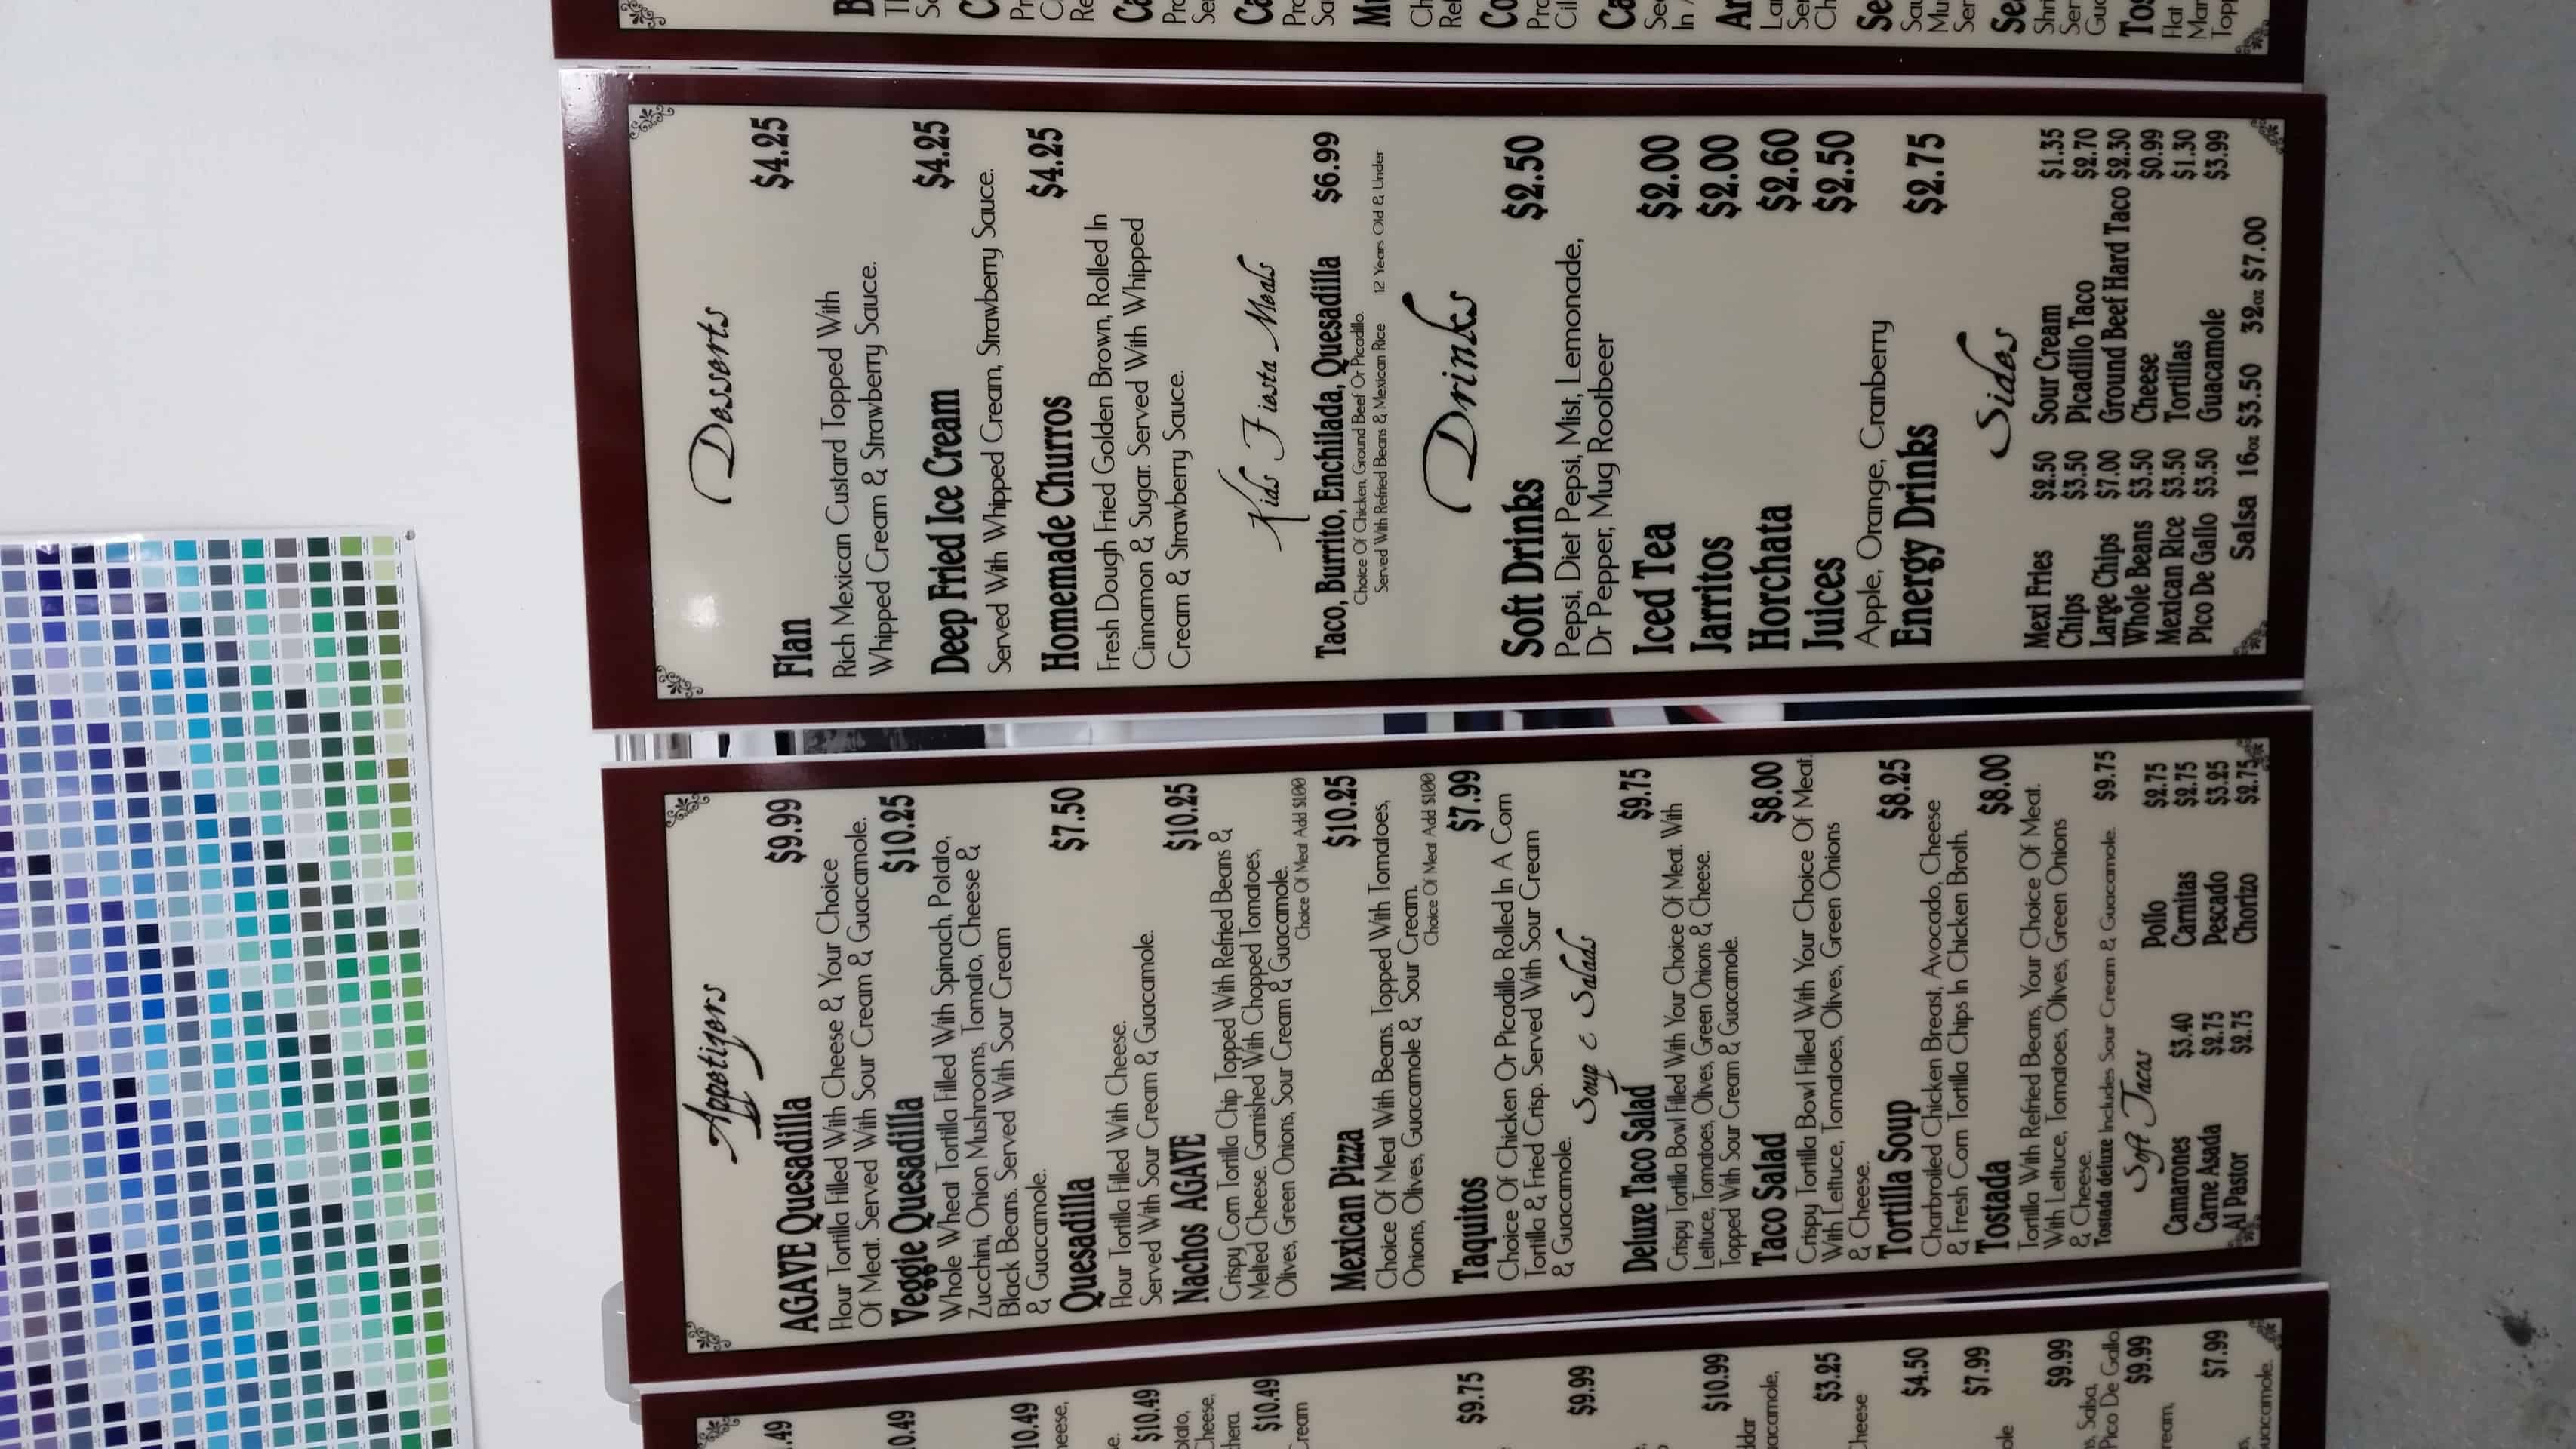 .49
0.49
10.49
heese,
e.
$10.49
otato,
Cheese,
hera
$10.49
Cream
$9.75
$9.99
$10.99
ddar
acamole,
$3.25
Cheese
$4.50
$7.99
ole
$9.99
s, Salsa,
Pico De Gallo
$9.99
ream,
$7.99
s,
uacamole.
Appetizers
AGAVE Quesadilla $9.99
Flour Tortilla Filled With Cheese & Your Choice
Of Meat. Served With Sour Cream & Guacamole.
Veggie Quesadilla $10.25
Whole Wheat Tortilla Filled With Spinach, Potato,
Zucchini, Onion Mushrooms, Tomato, Cheese &
Black Beans. Served With Sour Cream
& Guacamole.
Quesadilla $7.50
Flour Tortilla Filled With Cheese.
Served With Sour Cream & Guacamole.
Nachos AGAVE $10.25
Crispy Corn Tortilla Chip Topped With Refried Beans &
Melted Cheese. Garnished With Chopped Tomatoes,
Olives, Green Onions, Sour Cream & Guacamole.
Choice Of Meat Add $1.00
Mexican Pizza $10.25
Choice Of Meat With Beans. Topped With Tomatoes,
Onions, Olives, Guacamole & Sour Cream.
Choice Of Meat Add $1.00
Taquitos $7.99
Choice Of Chicken Or Picadillo Rolled In A Corn
Tortilla & Fried Crisp. Served With Sour Cream
& Guacamole.
Soup & Salads
Deluxe Taco Salad $9.75
Crispy Tortilla Bowl Filled With Your Choice Of Meat. With
Lettuce, Tomatoes, Olives, Green Onions & Cheese.
Topped With Sour Cream & Guacamole.
Taco Salad $8.00
Crispy Tortilla Bowl Filled With Your Choice Of Meat.
With Lettuce, Tomatoes, Olives, Green Onions
& Cheese.
Tortilla Soup $8.25
Charbroiled Chicken Breast, Avocado, Cheese
& Fresh Corn Tortilla Chips In Chicken Broth.
Tostada $8.00
Tortilla With Refried Beans, Your Choice Of Meat.
With Lettuce, Tomatoes, Olives, Green Onions
& Cheese.
Tostada deluxe Includes Sour Cream & Guacamole. $9.75
Soft Tacos
Pollo $2.75
Camarones $3.40 Carnitas $2.75
Carne Asada $2.75 Pescado $3.25
Al Pastor $2.75 Chorizo $2.75
Desserts
Flan $4.25
Rich Mexican Custard Topped With
Whipped Cream & Strawberry Sauce.
Deep Fried Ice Cream $4.25
Served With Whipped Cream, Strawberry Sauce.
Homemade Churros $4.25
Fresh Dough Fried Golden Brown, Rolled In
Cinnamon & Sugar. Served With Whipped
Cream & Strawberry Sauce.
Kids Fiesta Meals
Taco, Burrito, Enchilada, Quesadilla $6.99
Choice Of Chicken, Ground Beef Or Picadillo.
Served With Refried Beans & Mexican Rice 12 Years Old & Under
Drinks
Soft Drinks $2.50
Pepsi, Diet Pepsi, Mist, Lemonade,
Dr Pepper, Mug Rootbeer
Iced Tea $2.00
Jarritos $2.00
Horchata $2.60
Juices $2.50
Apple, Orange, Cranberry
Energy Drinks $2.75
Sides
Mexi Fries $2.50 Sour Cream $1.35
Chips $3.50 Picadillo Taco $2.70
Large Chips $7.00 Ground Beef Hard Taco $2.30
Whole Beans $3.50 Cheese $0.99
Mexican Rice $3.50 Tortillas $1.30
Pico De Gallo $3.50 Guacamole $3.99
Salsa 16oz $3.50 32oz $7.00
B
Co
Pro
Cil
Ca
Sec
In A
Ar
Ser
Ch
Se
Sau
Mu
Ser
Se
Shri
Ser
Gua
Tos
Flat
Mar
Topp